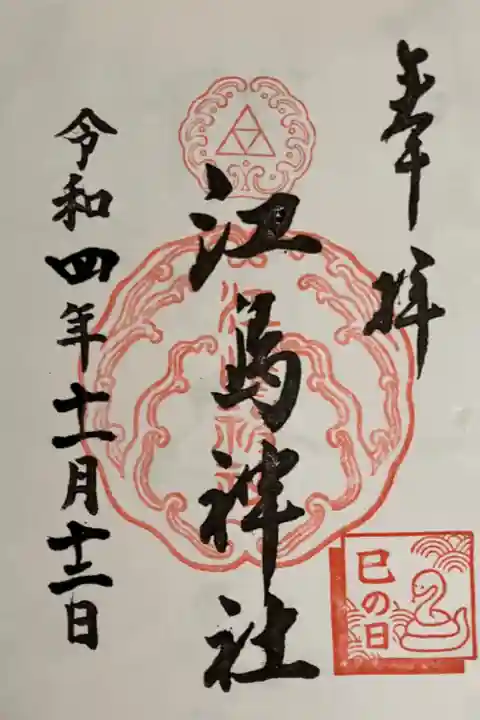 奉拝
江島神社
令和四年十一月十二日
巳の日